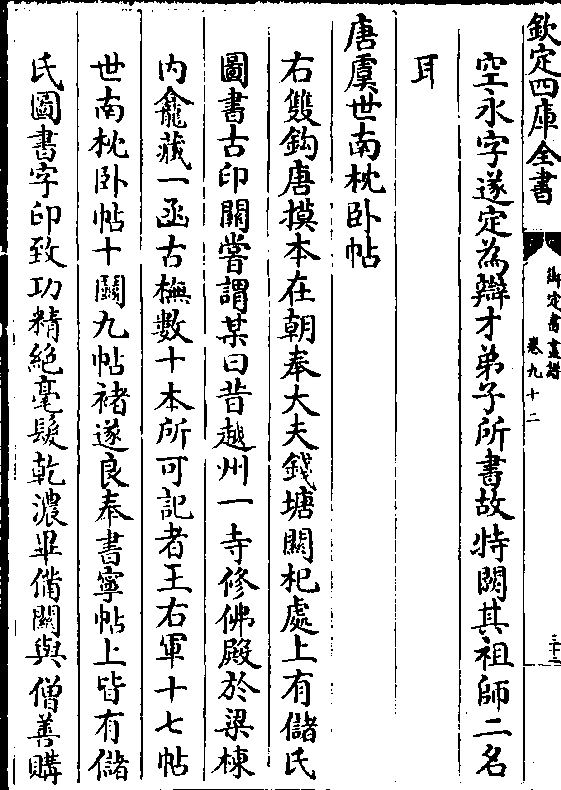 欽定四庫全書
御定書畫譜
卷九十二
三十二
空永字遂定為辯才弟子所書故特闕其祖師二名
耳
唐虞世南枕卧帖
右雙鈎唐摸本在朝奉大夫錢塘闗杞處上有儲氏
圖書古印闗嘗謂某曰昔越州一寺修佛殿於梁棟
内龕藏一函古橅數十本所可記者王右軍十七帖
世南枕卧帖十闕九帖禇遂良奉書寧帖上皆有儲
氏圖書字印致功精絶毫髮乾濃畢備闗與僧善購